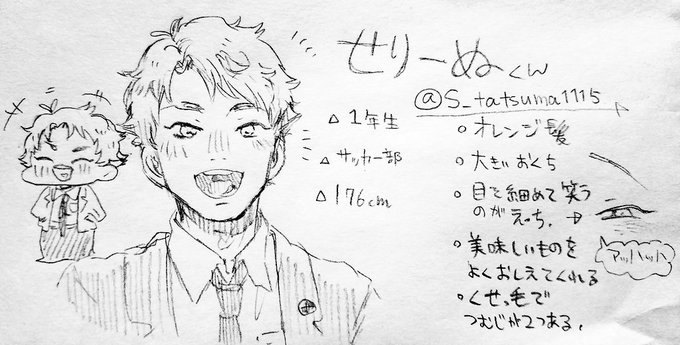 せりーぬくん
@S_tatsuma1115
△ 1年生
△ サッカー部
△ 176cm
○ オレンジ髪
○ 大きいおくち
○ 目を細めて笑う
のがえっち。→
アッハッハ
○ 美味しいものを
よくおしえてくれる
○ くせっ毛で
つむじが2つある。